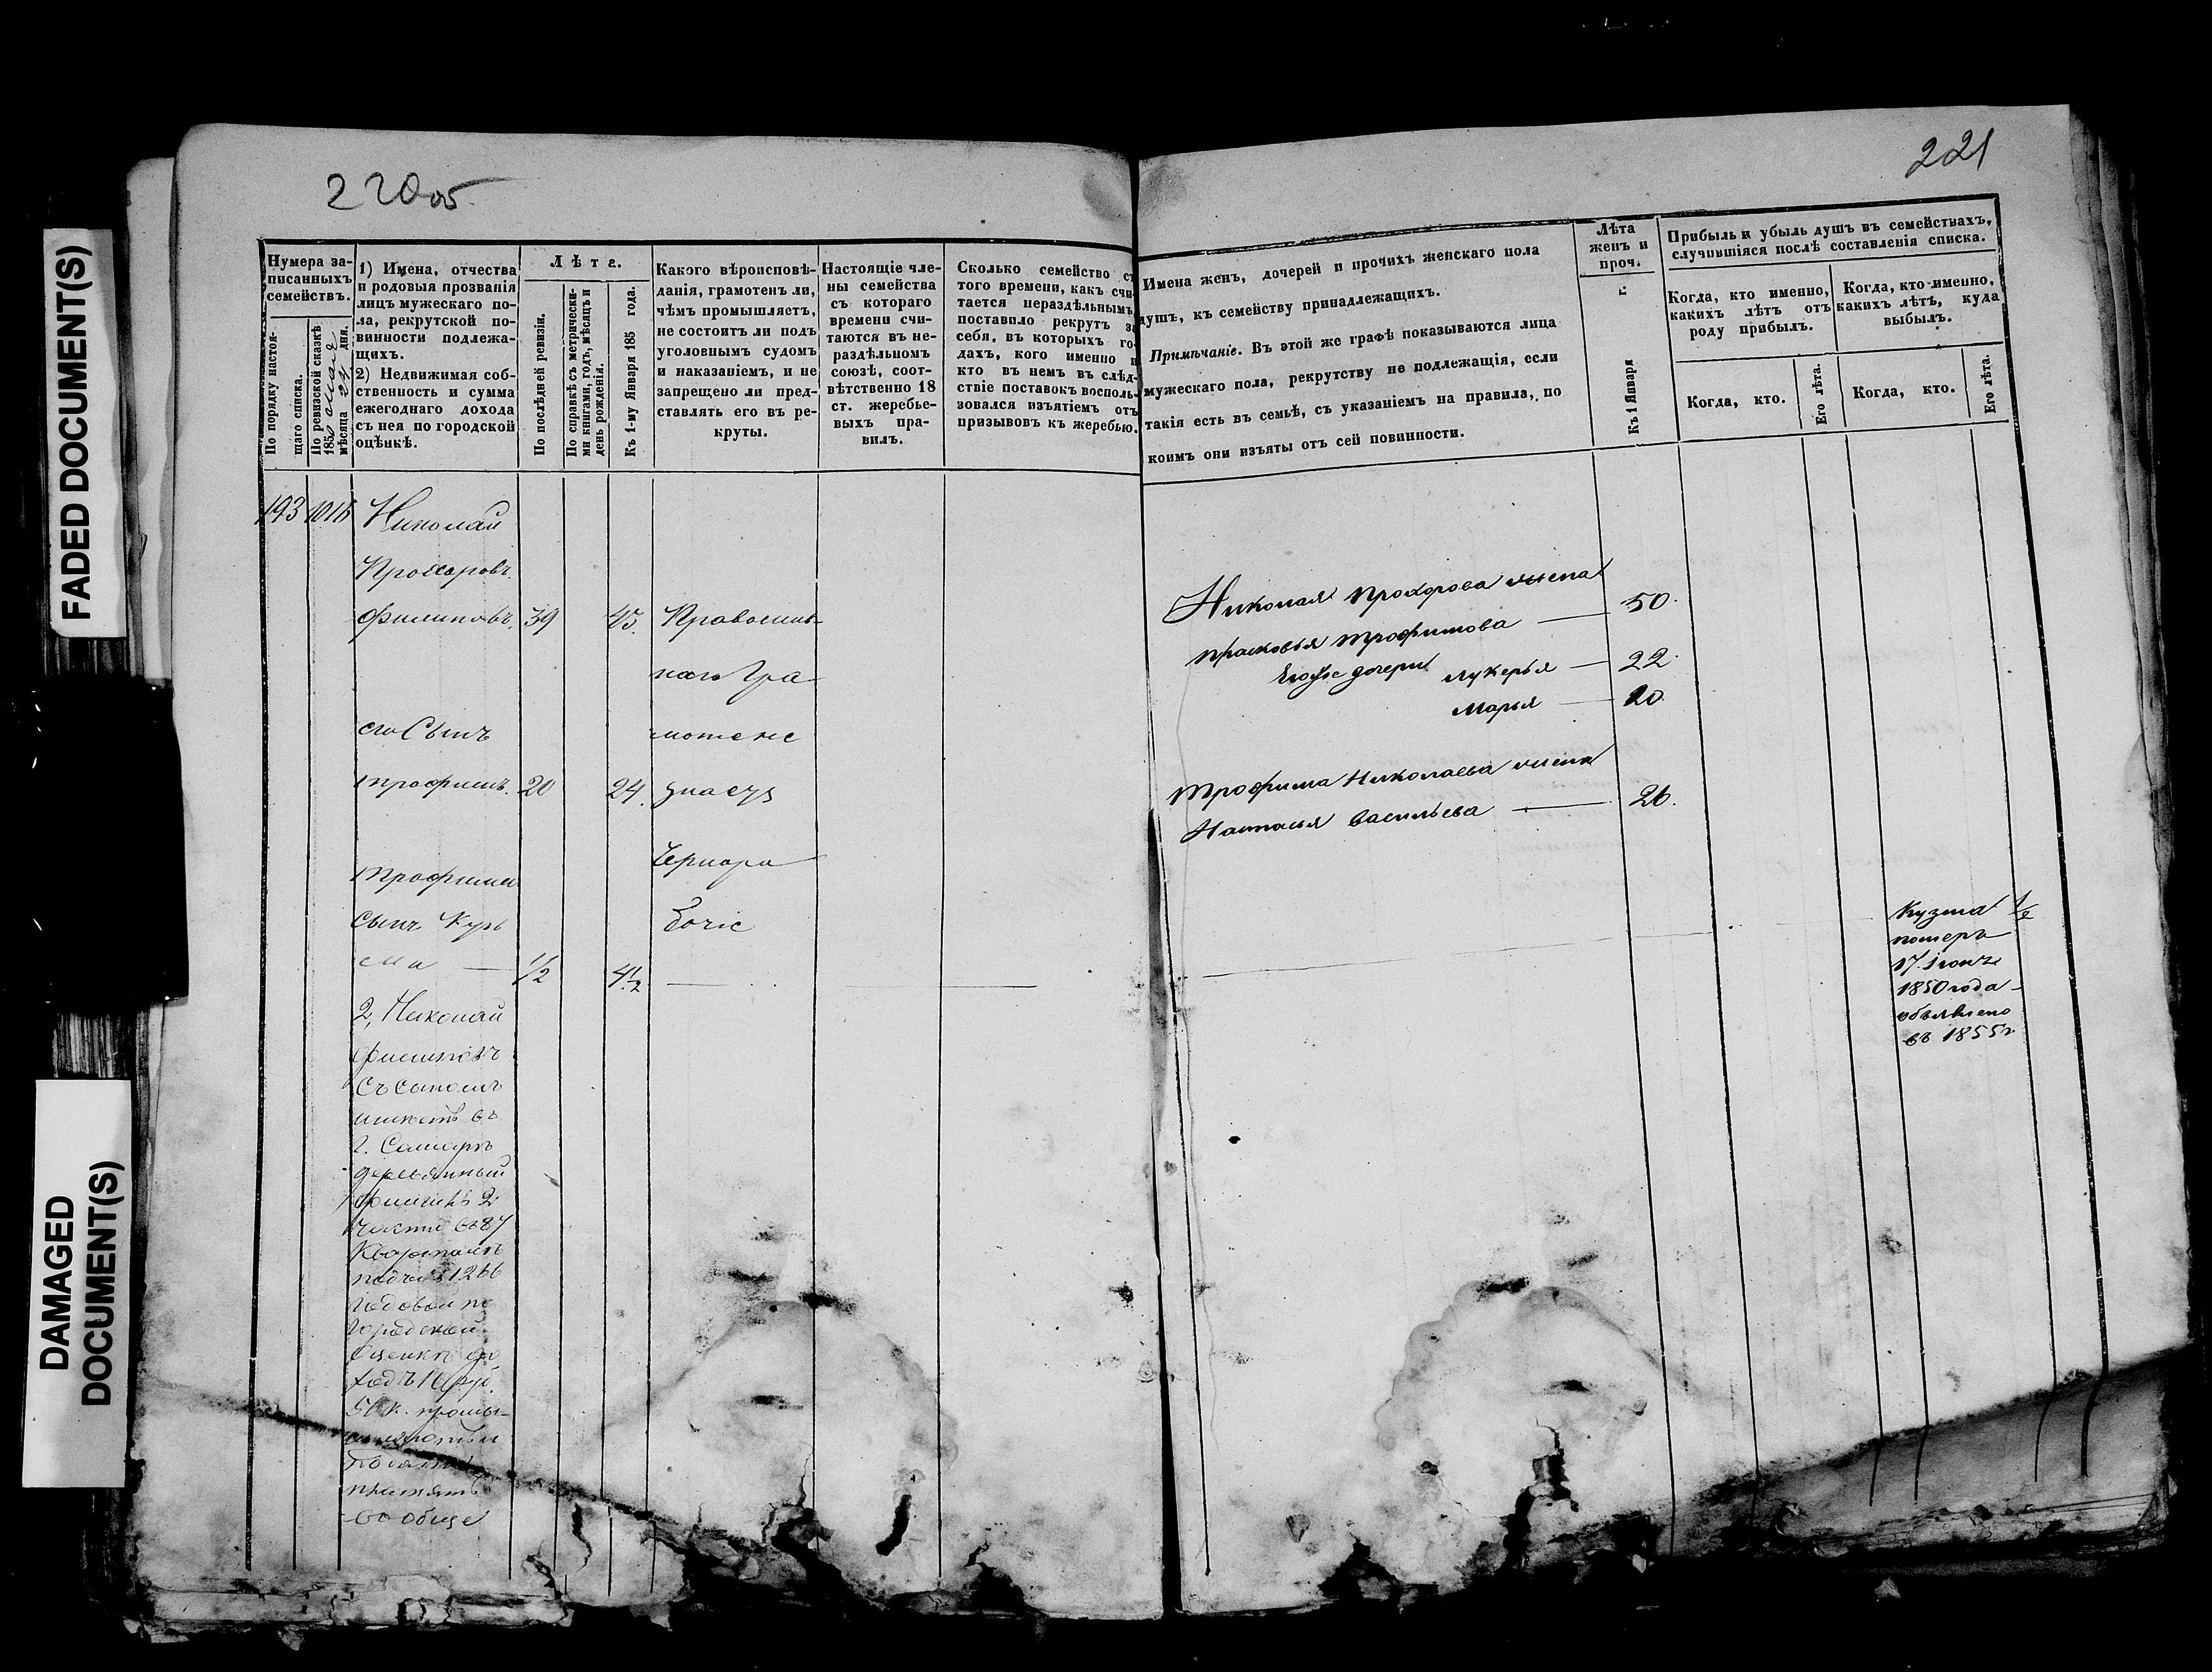 FADED DOCUMENT(S)
DAMAGED
DOCUMENT(S)
220об
Нумера за-
писанныхъ
семействъ.
По порядку настоя-
щаго списка.
По ревизской сказкѣ
1850
мѣсяца 24 дня.
1) Имена, отчества
и родовыя прозванія
лицъ мужескаго по-
ла, рекрутской по-
винности подлежа-
щихъ.
2) Недвижимая соб-
ственность и сумма
ежегоднаго дохода
съ нея по городской
оцѣнкѣ.
Лѣта.
По послѣдней ревизіи.
По справкѣ съ метрически-
ми книгами, годъ, мѣсяцъ и
день рожденія.
Къ 1-му Января 185 года.
Какого вѣроисповѣ-
данія, грамотенъ ли,
чѣмъ промышляетъ,
не состоитъ ли подъ
уголовнымъ судомъ
и наказаніемъ, и не
запрещено ли пред-
ставлять его въ ре-
круты.
Настоящіе чле-
ны семейства
съ котораго
времени счи-
таются въ не-
раздѣльномъ
союзѣ, соот-
вѣтственно 18
ст. жеребье-
выхъ пра-
вилъ.
Сколько семейство съ
того времени, какъ счи-
тается нераздѣльнымъ,
поставило рекрутъ за
себя, въ которыхъ го-
дахъ, кого именно и
кто въ немъ въ слѣд-
ствіе поставокъ восполь-
зовался изъятіемъ отъ
призывовъ къ жеребью.
193 1016 Николай
Прохоровъ
Филиповъ. 39 45. Православ-
наго Гра
его Сынъ мотене
Трофимъ. 20 24. знаетъ
Чернора
Трофима
сынъ Кузь бочіе
ма — 1/2 4 1/2
2, Николай
Филиповъ
Съ сыномъ
имѣетъ въ
г. Самарѣ
деревянный
флигель 2
части въ 87
Кварталѣ
подъ № 1266
годовой по
городской
Оценкѣ до
ходъ руб.
50 к. промы-
шляютъ и
подати
платятъ
во обще
221
Имена женъ, дочерей и прочихъ женскаго пола
душъ, къ семейству принадлежащихъ.
Примѣчаніе. Въ этой же графѣ показываются лица
мужескаго пола, рекрутству не подлежащія, если
такія есть въ семьѣ, съ указаніемъ на правила, по
коимъ они изъяты отъ сей повинности.
Лѣта
женъ и
проч.
Къ 1 Января г.
Прибыль и убыль душъ въ семействахъ,
случившіяся послѣ составленія списка.
Когда, кто именно,
какихъ лѣтъ отъ
роду прибылъ.
Когда, кто именно,
какихъ лѣтъ, куда
выбылъ.
Когда, кто.
Его лѣта.
Когда, кто.
Его лѣта.
Николая Прохорова жена
Прасковья Трофимова — 50.
Егоже дочери Лукерья — 22.
Марья — 20
Трофима Николаева жена
Настасья Васильева — 26.
Кузма 1/2
померъ
17. Іюня
1850 года
объявлено
въ 1855 г.